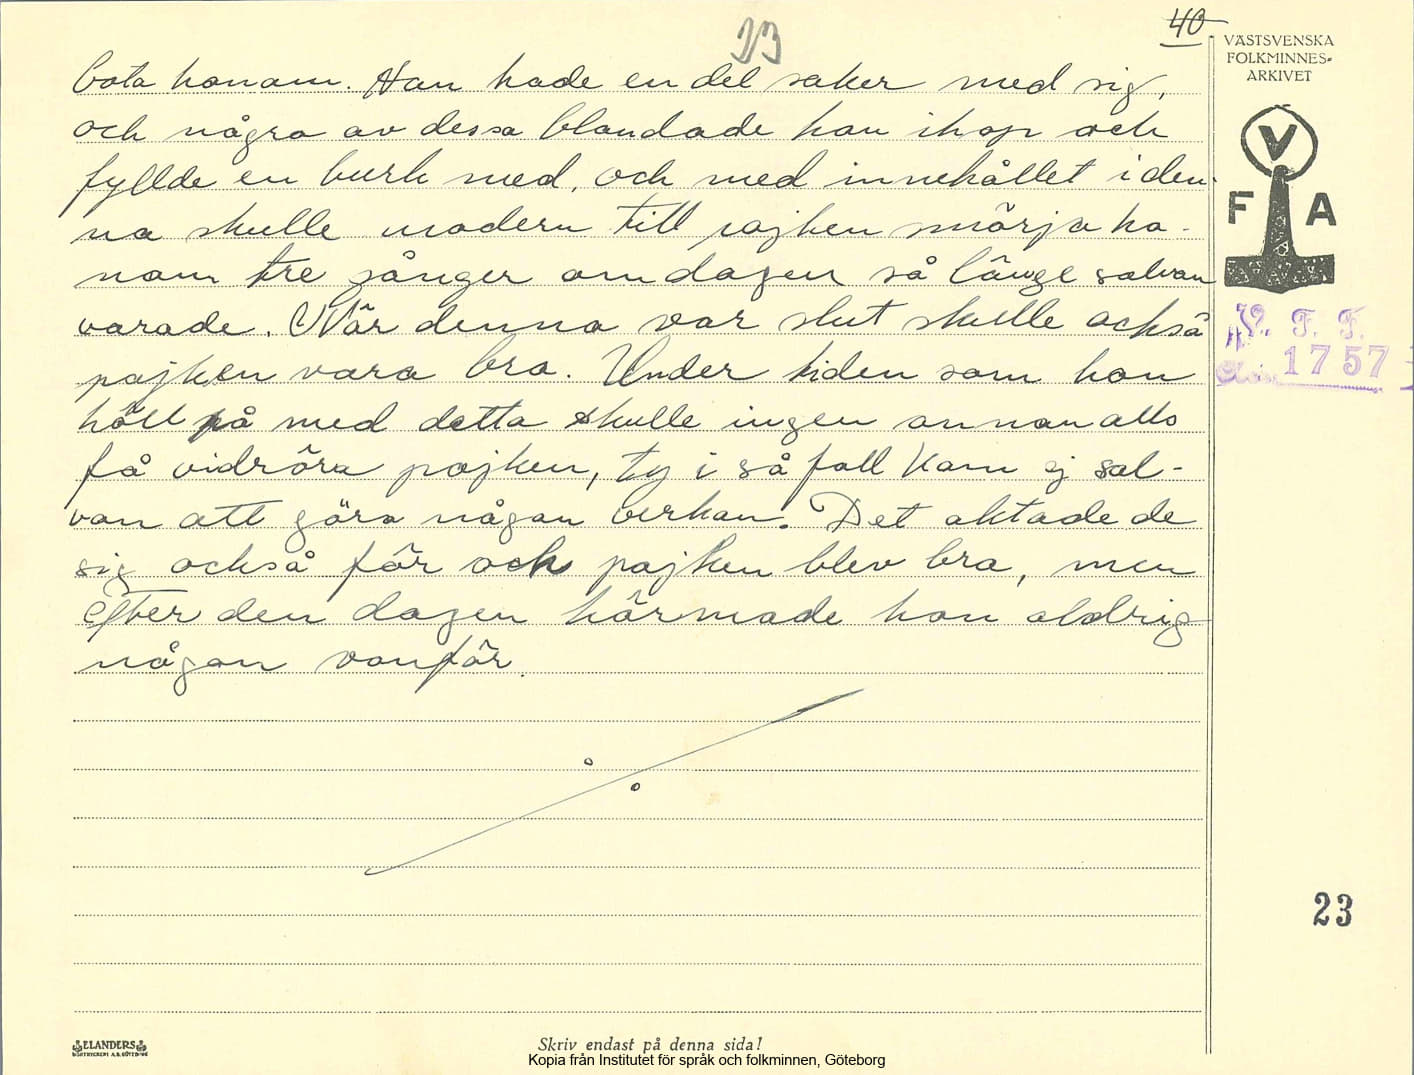 23
40
VÄSTSVENSKA
FOLKMINNES-
ARKIVET
bota honom. Han hade en del saker med sig,
och några av dessa blandade han ihop och
fyllde en burk med, och med innehållet i den-
na skulle modern till pojken smörja ho-
nom tre gånger om dagen så länge salvan
varade. När denna var slut skulle också
pojken vara bra. Under tiden som hon
höll på med detta skulle ingen annan alls
få vidröra pojken, ty i så fall kom ej sal-
van att göra någon verkan. Det aktade de
sig också för och pojken blev bra, men
efter den dagen härmade han aldrig
någon vanför.
V
F A
V. F. F.
1757
23
ELANDERS
BOKTRYCKERI A.B. GÖTEBORG
Skriv endast på denna sida!
Kopia från Institutet för språk och folkminnen, Göteborg